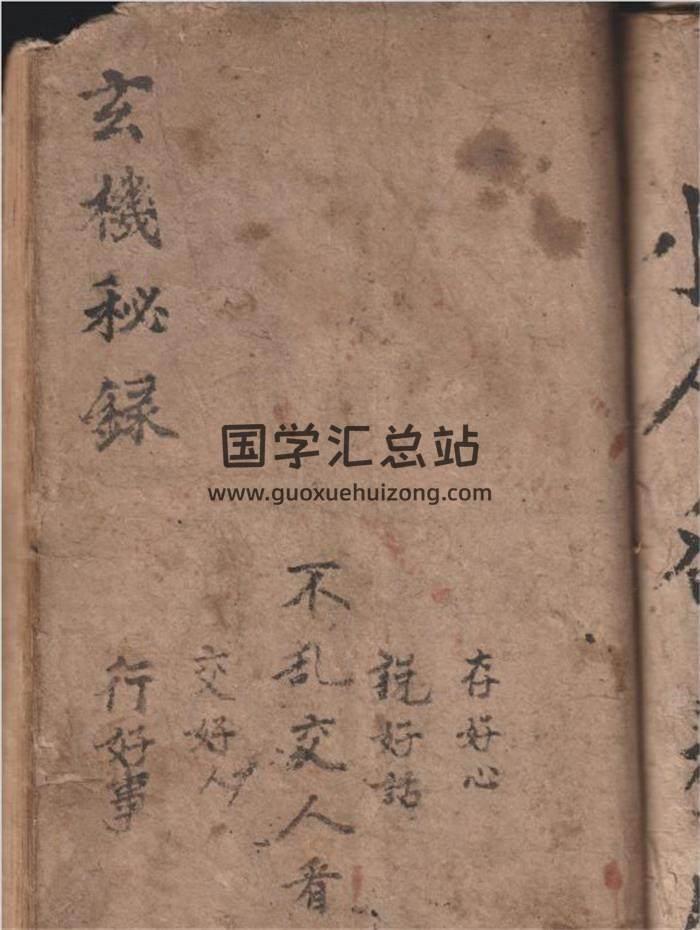 玄機秘録
国学汇总站
www.guoxuehuizong.com
存好心
説好話
不乱交人看
交好人
行好事